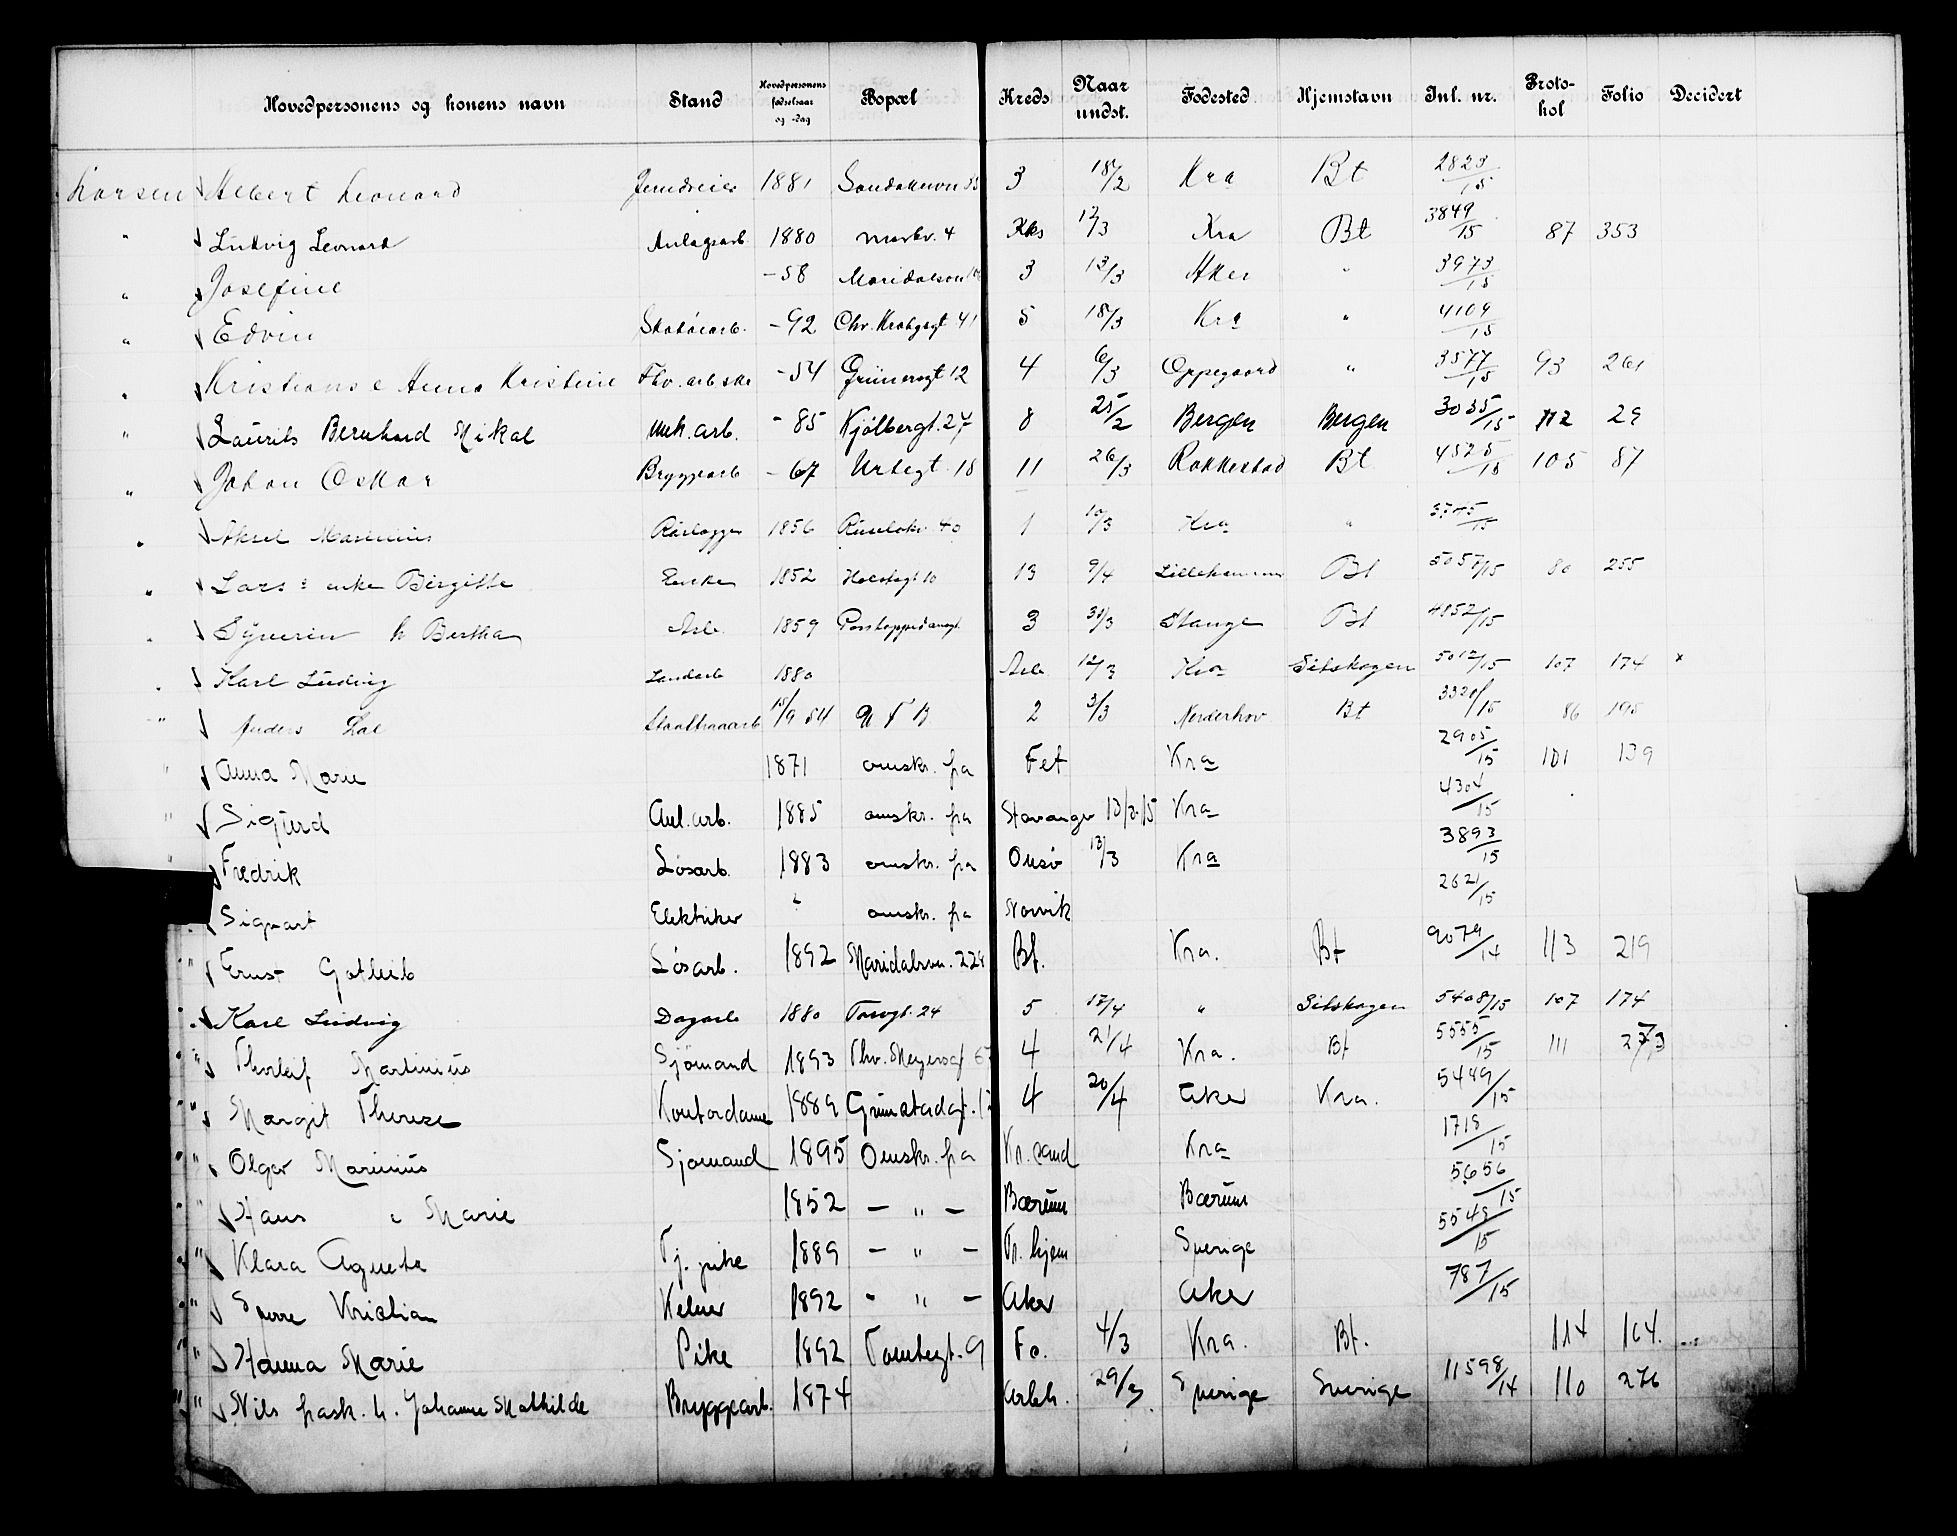 Hovedpersonens og konens navn Stand Hovedpersonens fødselsaar og -dag Bopæl Kreds Naar undst. Fødested Hjemstavn Inl. nr. Proto-kol Folio Decidert
Larsen Albert Leonard 1881 3 18/2 Kra Bt 2823/15
" Ludvig Leonard Anlægsarb. 1880 Markv. 4 Kks 12/3 Kra Bt 3849/15 87 353
" Josefine -58 3 13/3 Aker " 3973/15
" Edvin Skotøiarb. -92 Chr. Krohgsgt 41 5 18/3 Kra " 4109/15
" Kristians e Anna Kristine -54 Grünersgt 12 4 6/3 Oppegaard " 3577/15 93 261
" Laurits Bernhard Mikal mek. arb. -85 Kjølbergt. 27 8 25/2 Bergen Bergen 3035/15 112 29
" Johan Oskar Bryggearb -67 Urtegt. 18 11 26/3 Rakkestad Bt 4525/15 105 87
" Aksel Martinius Rørlægger 1856 Ruseløkv. 40 1 10/3 Kra " 3745/15
" Lars's enke Birgitte Enke 1852 Holstsgt 10 13 9/4 Lillehammer Bt 5057/15 80 255
" Syverin h Bertha Arb. 1859 3 30/3 Stange Bt 4852/15
" Karl Ludvig Landarb 1880 Arb 12/3 Kra Setskogen 5012/15 107 174 x
" Anders 15/9 54 U F B 2 3/3 Norderhov Bt 3320/15 86 195
" Anna Marie 1871 omskr. fra Fet Kra 2905/15 101 139
" Sigurd Anl. arb. 1885 omskr. fra Stavanger 13/3-15 Kra 4304/15
" Fredrik Løsarb. 1883 omskr. fra Onsø 13/3 Kra 3893/15
Sigvart Elektriker omskr. fra Narvik 2621/15
" Ernst Gotlieb Løsarb. 1892 Maridalsvn. 228 Bt. Kra. Bt 9079/14 113 219
" Karl Ludvig Dagarb 1880 Torvgt. 24 5 17/4 " Setskogen 5408/15 107 174
" Thorleif Martinius Sjømand 1893 Thv. Meyersgt 4 21/4 Kra. Bt 5555/15 111 273
" Margit Therese Kontordame 1889 Grimstadgt. 4 20/4 Aker Kra. 5489/15
" Olger Marinius Sjømand 1895 Omskr. fra Kr.sand Kra 1718/15
" Hans e Marie 1852 — " — Bærum Bærum 5656/15
" Klara Agneta Tj. pike 1889 — " — Tr.hjem Sverige 5549/15
" Sverre Kristian Kelner 1892 - " — Aker Aker 787/15
" Hanna Marie Pike 1892 Tomtegt. 9 Fo. 4/3 Kra. Bt. 114 164.
" Nils frask. h. Johanne Mathilde Bryggearb. 1874 Arbh. 29/3 Sverige Sverige 11598/14 110 276